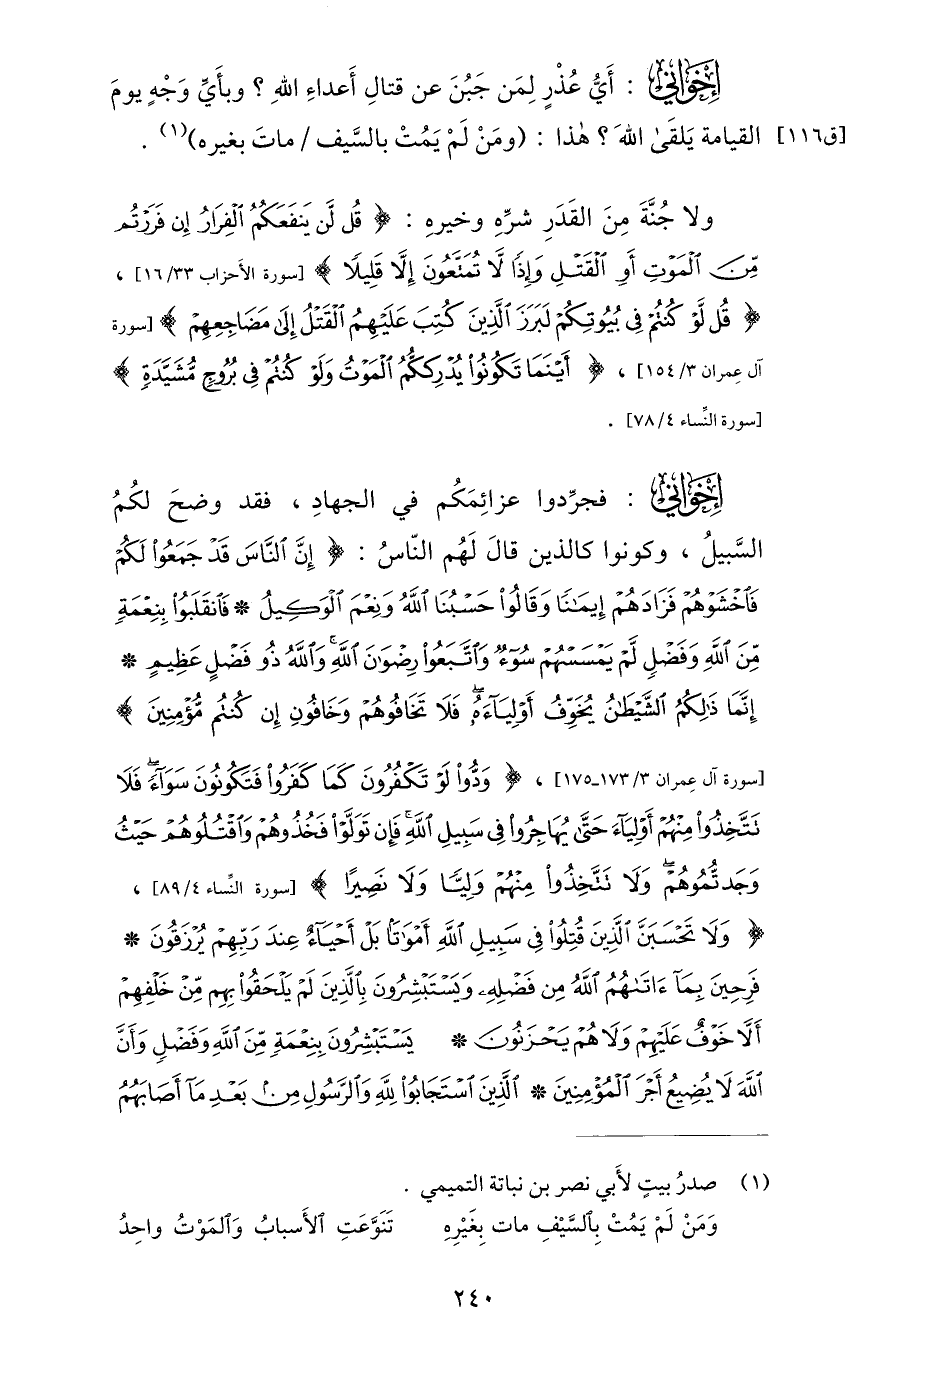 إِخْوَاني : أَيُّ عُذْرٍ لِمَن جَبُنَ عن قتالِ أَعداءِ اللهِ ؟ وبأَيِّ وَجْهٍ يومَ
[ق١١٦] القيامة يَلقَىٰ اللهَ ؟ هٰذا : (ومَنْ لَمْ يَمُتْ بالسَّيف / ماتَ بغيره)(١) .
ولا جُنَّةَ مِنَ القَدَرِ شرِّهِ وخيره : ﴿ قُل لَّن يَنفَعَكُمُ ٱلْفِرَارُ إِن فَرَرْتُم
مِّنَ ٱلْمَوْتِ أَوِ ٱلْقَتْلِ وَإِذًا لَّا تُمَتَّعُونَ إِلَّا قَلِيلًا ﴾ [سورة الأَحزاب ١٦/٣٣] ،
﴿ قُل لَّوْ كُنتُمْ فِى بُيُوتِكُمْ لَبَرَزَ ٱلَّذِينَ كُتِبَ عَلَيْهِمُ ٱلْقَتْلُ إِلَىٰ مَضَاجِعِهِمْ ﴾ [سورة
آل عِمران ١٥٤/٣] ، ﴿ أَيْنَمَا تَكُونُوا۟ يُدْرِككُّمُ ٱلْمَوْتُ وَلَوْ كُنتُمْ فِى بُرُوجٍ مُّشَيَّدَةٍ ﴾
[سورة النِّساء ٧٨/٤] .
إِخْوَاني : فجرِّدوا عزائِمَكُم في الجهادِ ، فقد وضحَ لكُمُ
السَّبيلُ ، وكونوا كالذين قالَ لَهُم النّاسُ : ﴿ إِنَّ ٱلنَّاسَ قَدْ جَمَعُوا۟ لَكُمْ
فَٱخْشَوْهُمْ فَزَادَهُمْ إِيمَـٰنًا وَقَالُوا۟ حَسْبُنَا ٱللَّهُ وَنِعْمَ ٱلْوَكِيلُ * فَٱنقَلَبُوا۟ بِنِعْمَةٍ
مِّنَ ٱللَّهِ وَفَضْلٍ لَّمْ يَمْسَسْهُمْ سُوٓءٌ وَٱتَّبَعُوا۟ رِضْوَٰنَ ٱللَّهِ ۗ وَٱللَّهُ ذُو فَضْلٍ عَظِيمٍ *
إِنَّمَا ذَٰلِكُمُ ٱلشَّيْطَـٰنُ يُخَوِّفُ أَوْلِيَآءَهُۥ ۖ فَلَا تَخَافُوهُمْ وَخَافُونِ إِن كُنتُم مُّؤْمِنِينَ ﴾
[سورة آل عِمران ١٧٣/٣ـ١٧٥] ، ﴿ وَدُّوا۟ لَوْ تَكْفُرُونَ كَمَا كَفَرُوا۟ فَتَكُونُونَ سَوَآءً ۖ فَلَا
تَتَّخِذُوا۟ مِنْهُمْ أَوْلِيَآءَ حَتَّىٰ يُهَاجِرُوا۟ فِى سَبِيلِ ٱللَّهِ ۚ فَإِن تَوَلَّوْا۟ فَخُذُوهُمْ وَٱقْتُلُوهُمْ حَيْثُ
وَجَدتُّمُوهُمْ ۖ وَلَا تَتَّخِذُوا۟ مِنْهُمْ وَلِيًّا وَلَا نَصِيرًا ﴾ [سورة النِّساء ٨٩/٤] ،
﴿ وَلَا تَحْسَبَنَّ ٱلَّذِينَ قُتِلُوا۟ فِى سَبِيلِ ٱللَّهِ أَمْوَٰتًۢا بَلْ أَحْيَآءٌ عِندَ رَبِّهِمْ يُرْزَقُونَ *
فَرِحِينَ بِمَآ ءَاتَىٰهُمُ ٱللَّهُ مِن فَضْلِهِۦ وَيَسْتَبْشِرُونَ بِٱلَّذِينَ لَمْ يَلْحَقُوا۟ بِهِم مِّنْ خَلْفِهِمْ
أَلَّا خَوْفٌ عَلَيْهِمْ وَلَا هُمْ يَحْزَنُونَ * يَسْتَبْشِرُونَ بِنِعْمَةٍ مِّنَ ٱللَّهِ وَفَضْلٍ وَأَنَّ
ٱللَّهَ لَا يُضِيعُ أَجْرَ ٱلْمُؤْمِنِينَ * ٱلَّذِينَ ٱسْتَجَابُوا۟ لِلَّهِ وَٱلرَّسُولِ مِنۢ بَعْدِ مَآ أَصَابَهُمُ
(١) صدرُ بيتٍ لأَبي نصر بن نباتة التميمي .
وَمَنْ لَمْ يَمُتْ بِٱلسَّيْفِ مات بِغَيْرِهِ تَنَوَّعَتِ ٱلأَسبابُ وَٱلمَوْتُ واحِدُ
٢٤٠